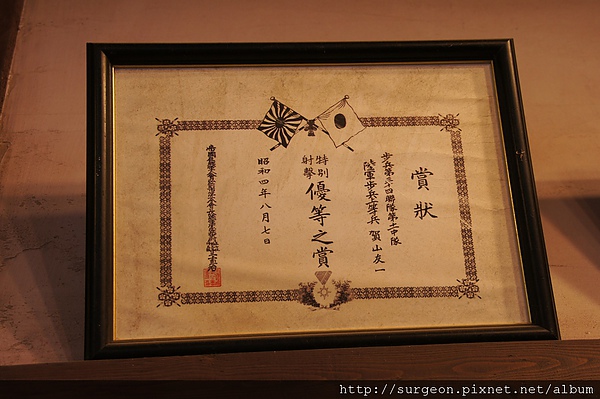 賞狀
歩兵第三四聯隊第二中隊
陸軍歩兵一等兵 賀山友一
特別
射擊
優等之賞
昭和四年八月七日
http://surgeon.pixnet.net/album